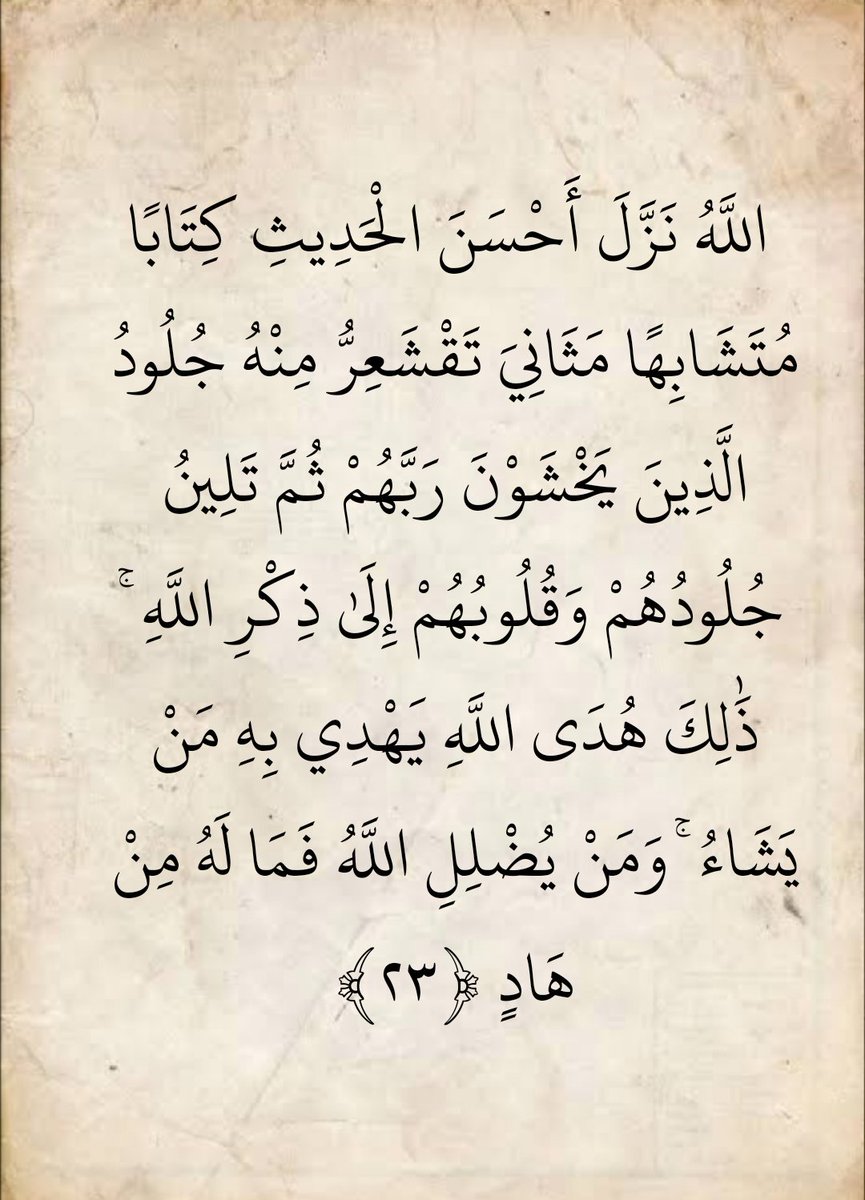 اللَّهُ نَزَّلَ أَحْسَنَ الْحَدِيثِ كِتَابًا
مُتَشَابِهًا مَثَانِيَ تَقْشَعِرُّ مِنْهُ جُلُودُ
الَّذِينَ يَخْشَوْنَ رَبَّهُمْ ثُمَّ تَلِينُ
جُلُودُهُمْ وَقُلُوبُهُمْ إِلَىٰ ذِكْرِ اللَّهِ ۚ
ذَٰلِكَ هُدَى اللَّهِ يَهْدِي بِهِ مَنْ
يَشَاءُ ۚ وَمَنْ يُضْلِلِ اللَّهُ فَمَا لَهُ مِنْ
هَادٍ ﴿٢٣﴾